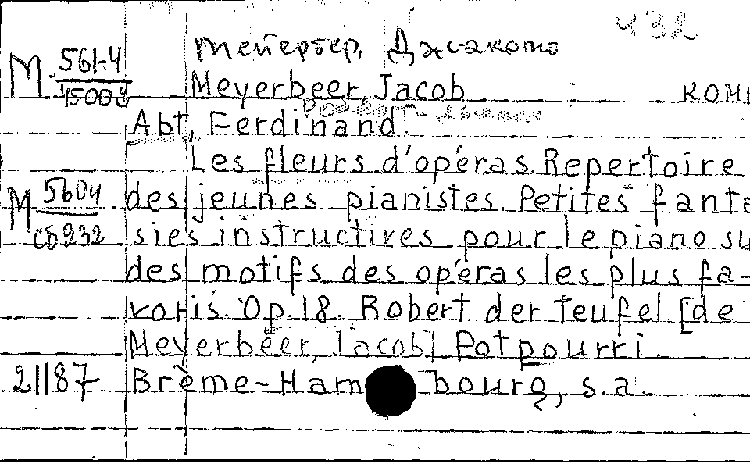 432
Мейербер, Джакомо
М 561-4
15008
Meyerbeer, Jacob комп
Abt, Ferdinand.
Les fleurs d'opéras. Repertoire
М 5604
сб932
des jeunes pianistes. Petites fanta
sies instructives pour le piano su
des motifs des opéras les plus fa-
voris. Op. 18. Robert der Teufel [de
Meyerbeer, Jacob] Potpourri
21187 Brème-Hambourg, s.a.